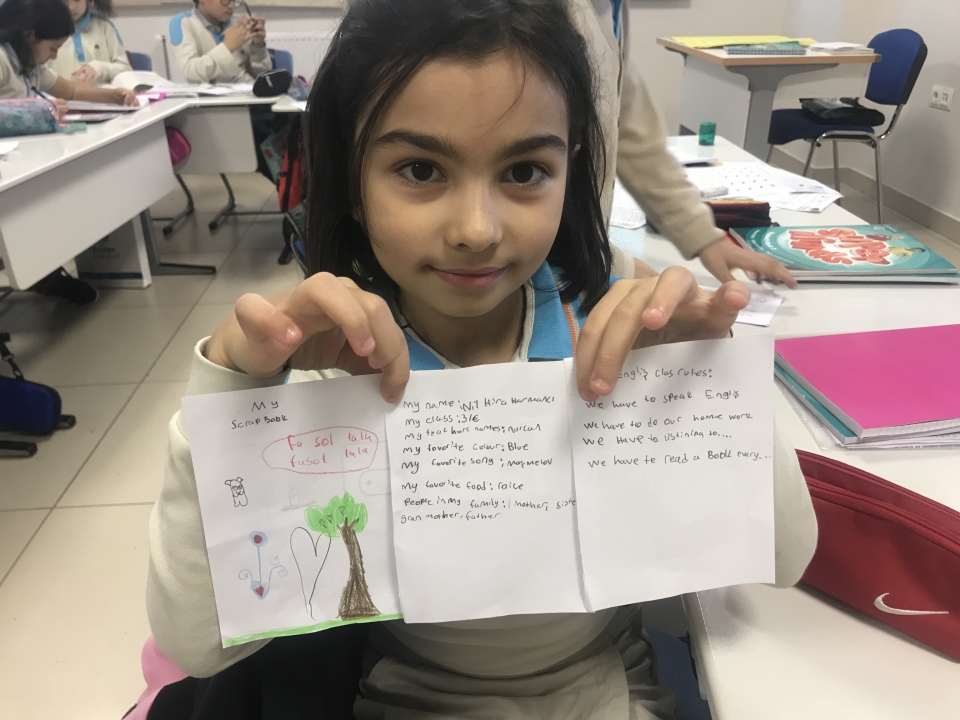 My
Scrap Book
fa sol lala
fa sol lala
My name: Hira
My class: 3/E
My teachers names:
My favorite colour: Blue
My favorite song:
My favorite food:
People in my family: mother, siste
gran mother, father
Englis clas rules:
We have to speak Englis
We have to do our home work
We have to listining to....
We have to read a Book every...